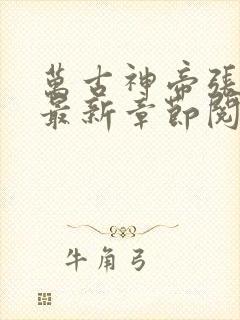 萬古神帝張
最新章節閱
牛角弓